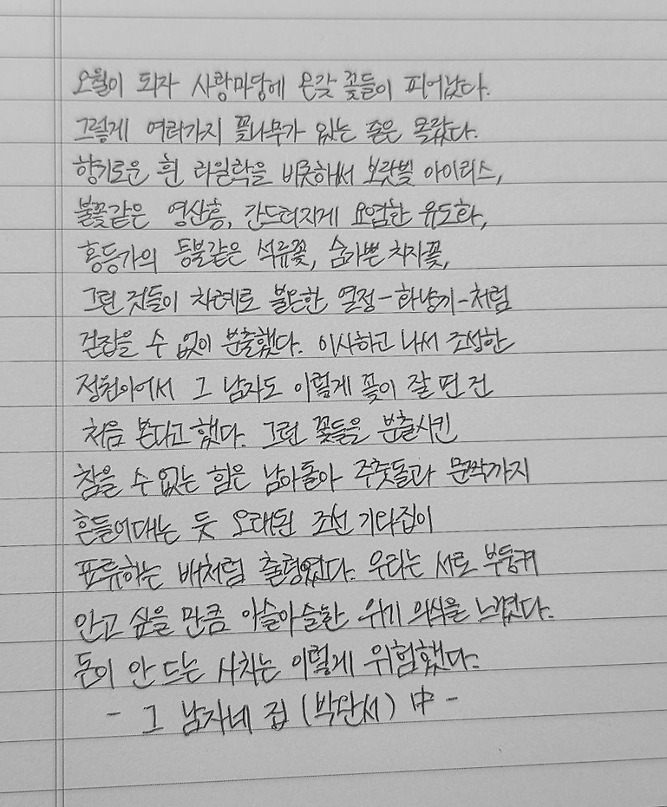 오월이 되자 사랑마당에 온갖 꽃들이 피어났다.
그렇게 여러가지 꽃나무가 있는 줄은 몰랐다.
향기로운 흰 라일락을 비롯해서 보랏빛 아이리스,
불꽃같은 영산홍, 간드러지게 요염한 유도화,
홍등가의 등불같은 석류꽃, 숨가쁜 치자꽃,
그런 것들이 차례로 불온한 열정-화냥끼-처럼
걷잡을 수 없이 분출했다. 이사하고 나서 조성한
정원이어서 그 남자도 이렇게 꽃이 잘 핀 건
처음 본다고 했다. 그런 꽃들을 분출시킨
참을 수 없는 힘은 남아돌아 주춧돌과 문짝까지
흔들어대는 듯 오래된 조선 기와집이
표류하는 배처럼 출렁였다. 우리는 서로 부둥켜
안고 싶을 만큼 아슬아슬한 위기 의식을 느꼈다.
돈이 안 드는 사치는 이렇게 위험했다.
- 그 남자네 집 (박완서) 中 -